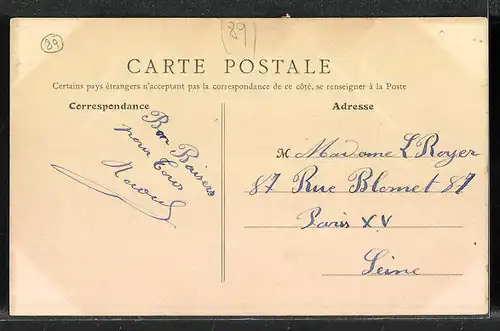 89
89
CARTE POSTALE
Certains pays étrangers n'acceptant pas la correspondance de ce côté, se renseigner à la Poste
Correspondance
Adresse
Bon Baisers
pour tous
Raoul
M Madame L Royer
87 Rue Blomet 87
Paris XV
Seine